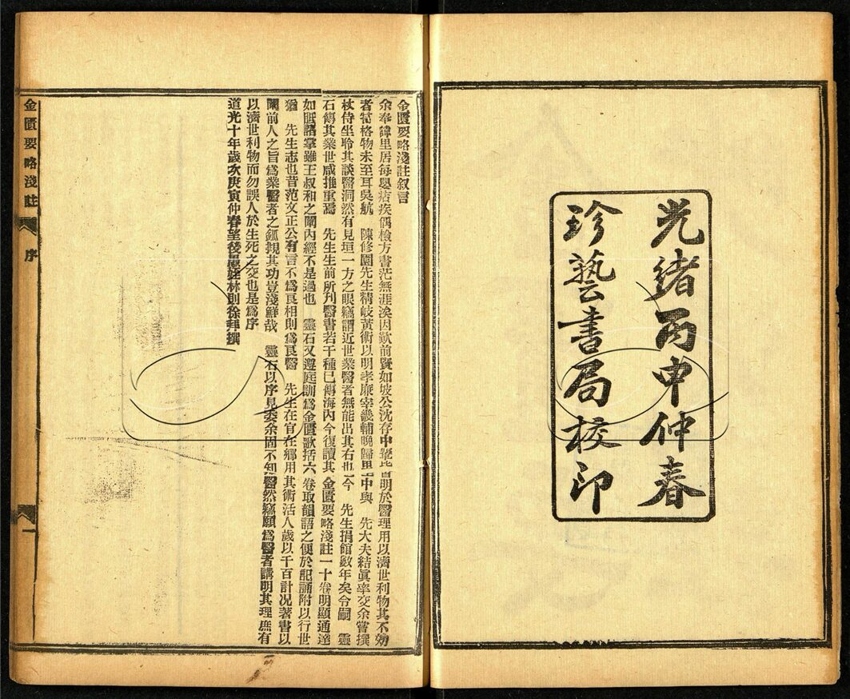 光緒丙申仲春
珍藝書局校印
金匱要略淺註叙言
余奉諱里居每遘痞疾偶檢方書茫無涯涘因歎前賢如坡公沈存中輩皆明於醫理用以濟世利物其不効
者當格物未至耳吳航　陳修園先生精岐黃術以明孝廉宰畿輔晚歸里中與　先大夫結眞率交余嘗撰
杖侍坐聆其談醫洞然有見垣一方之眼竊謂近世業醫者無能出其右也今　先生捐館數年矣令嗣　靈
石傳其業世咸推重焉　先生生前所刋醫書若干種已傳海內今復讀其　金匱要略淺註一十卷明顯通達
如眂諸掌雖王叔和之闡內經不是過也　靈石又遵庭訓爲金匱歌括六卷取韻語之便於記誦附以行世
猶　先生志也昔范文正公有言不爲良相則爲良醫　先生在官在鄉用其術活人歲以千百計况著書以
闡前人之旨爲業醫者之鉅規其功豈淺鮮哉　靈石以序見委余固不知醫然竊願爲醫者講明其理庶有
以濟世利物而勿誤人於生死之交也是爲序
道光十年歲次庚寅仲春望後 林則徐拜撰
金匱要略淺註
序
一